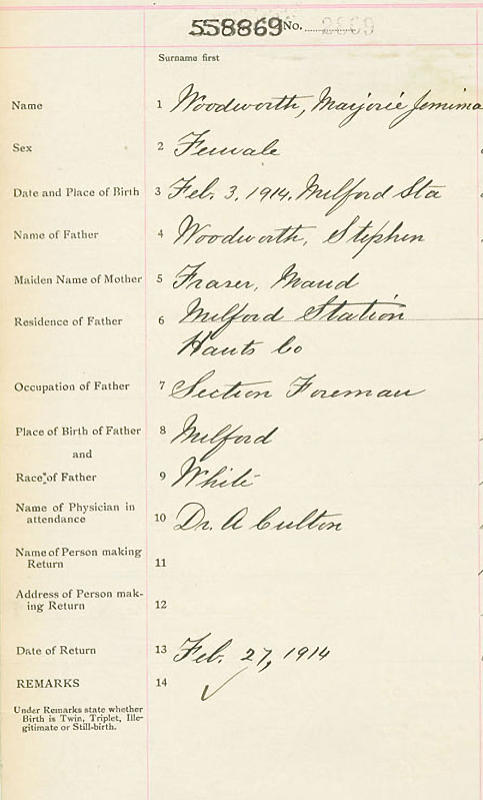 558869 No. 2669
Surname first
Name 1 Woodworth, Marjorie Jemima
Sex 2 Female
Date and Place of Birth 3 Feb. 3, 1914. Milford Sta
Name of Father 4 Woodworth, Stephen
Maiden Name of Mother 5 Fraser, Maud
Residence of Father 6 Milford Station
Hants Co
Occupation of Father 7 Section Foreman
Place of Birth of Father 8 Milford
and
Race of Father 9 White
Name of Physician in
attendance 10 Dr. A Culton
Name of Person making
Return 11
Address of Person mak-
ing Return 12
Date of Return 13 Feb. 27, 1914
REMARKS 14 ✓
Under Remarks state whether
Birth is Twin, Triplet, Ille-
gitimate or Still-birth.